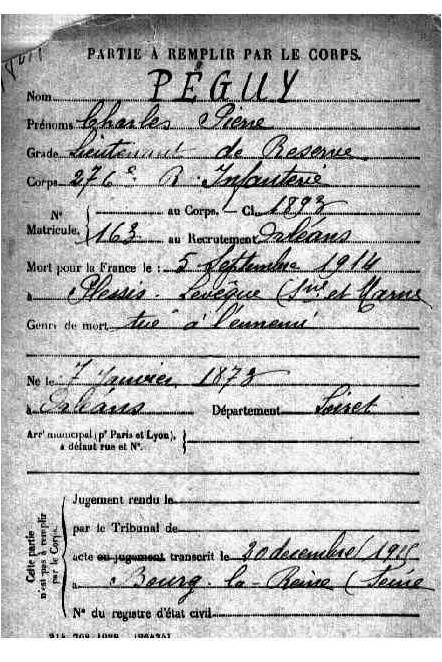 PARTIE À REMPLIR PAR LE CORPS.
Nom PÉGUY
Prénoms Charles Pierre
Grade Lieutenant de Réserve
Corps 276e R. Infanterie
N° Matricule. { au Corps. — Cl. 1893
163 au Recrutement Orléans
Mort pour la France le : 5 Septembre 1914
à Plessis-Levêque (Sne et Marne
Genre de mort tué à l'ennemi
Né le 7 Janvier 1873
à Orléans Département Loiret
Arrt municipal (pr Paris et Lyon),
à défaut rue et N°. }
Cette partie n'est pas à remplir par le Corps.
Jugement rendu le
par le Tribunal de
acte ou jugement transcrit le 20 décembre 1915
à Bourg-la-Reine (Seine
N° du registre d'état civil